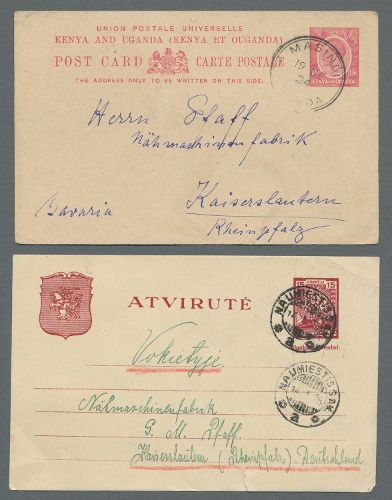 UNION POSTALE UNIVERSELLE
KENYA AND UGANDA (KENYA ET OUGANDA)
POST CARD CARTE POSTALE
THE ADDRESS ONLY TO BE WRITTEN ON THIS SIDE.
15
MASINDI
Herrn Pfaff
Nähmaschinenfabrik
Kaiserslautern
Bavaria
Rheinpfalz
ATVIRUTĖ
15 15
NAUMIESTIS
Vokietyje.
NAUMIESTIS ŠAK.
Nähmaschinenfabrik
G. M. Pfaff
Kaiserslautern (Rheinpfalz) Deutschland